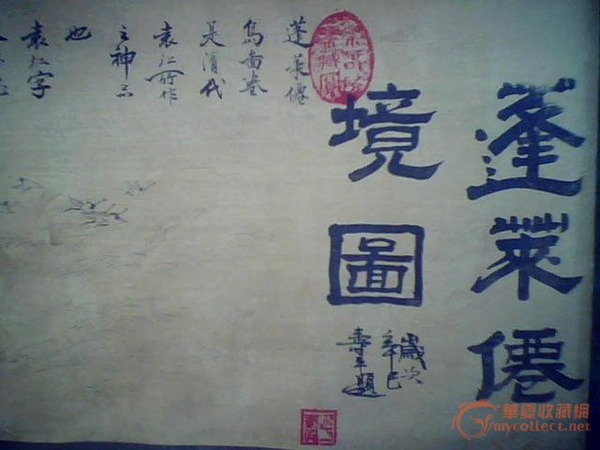 蓬萊僊
境圖
歲次
辛巳
壽平題
蓬萊僊
島卷
是清代
袁江所作
之神品
也
袁江字
華夏收藏網
mycollect.net